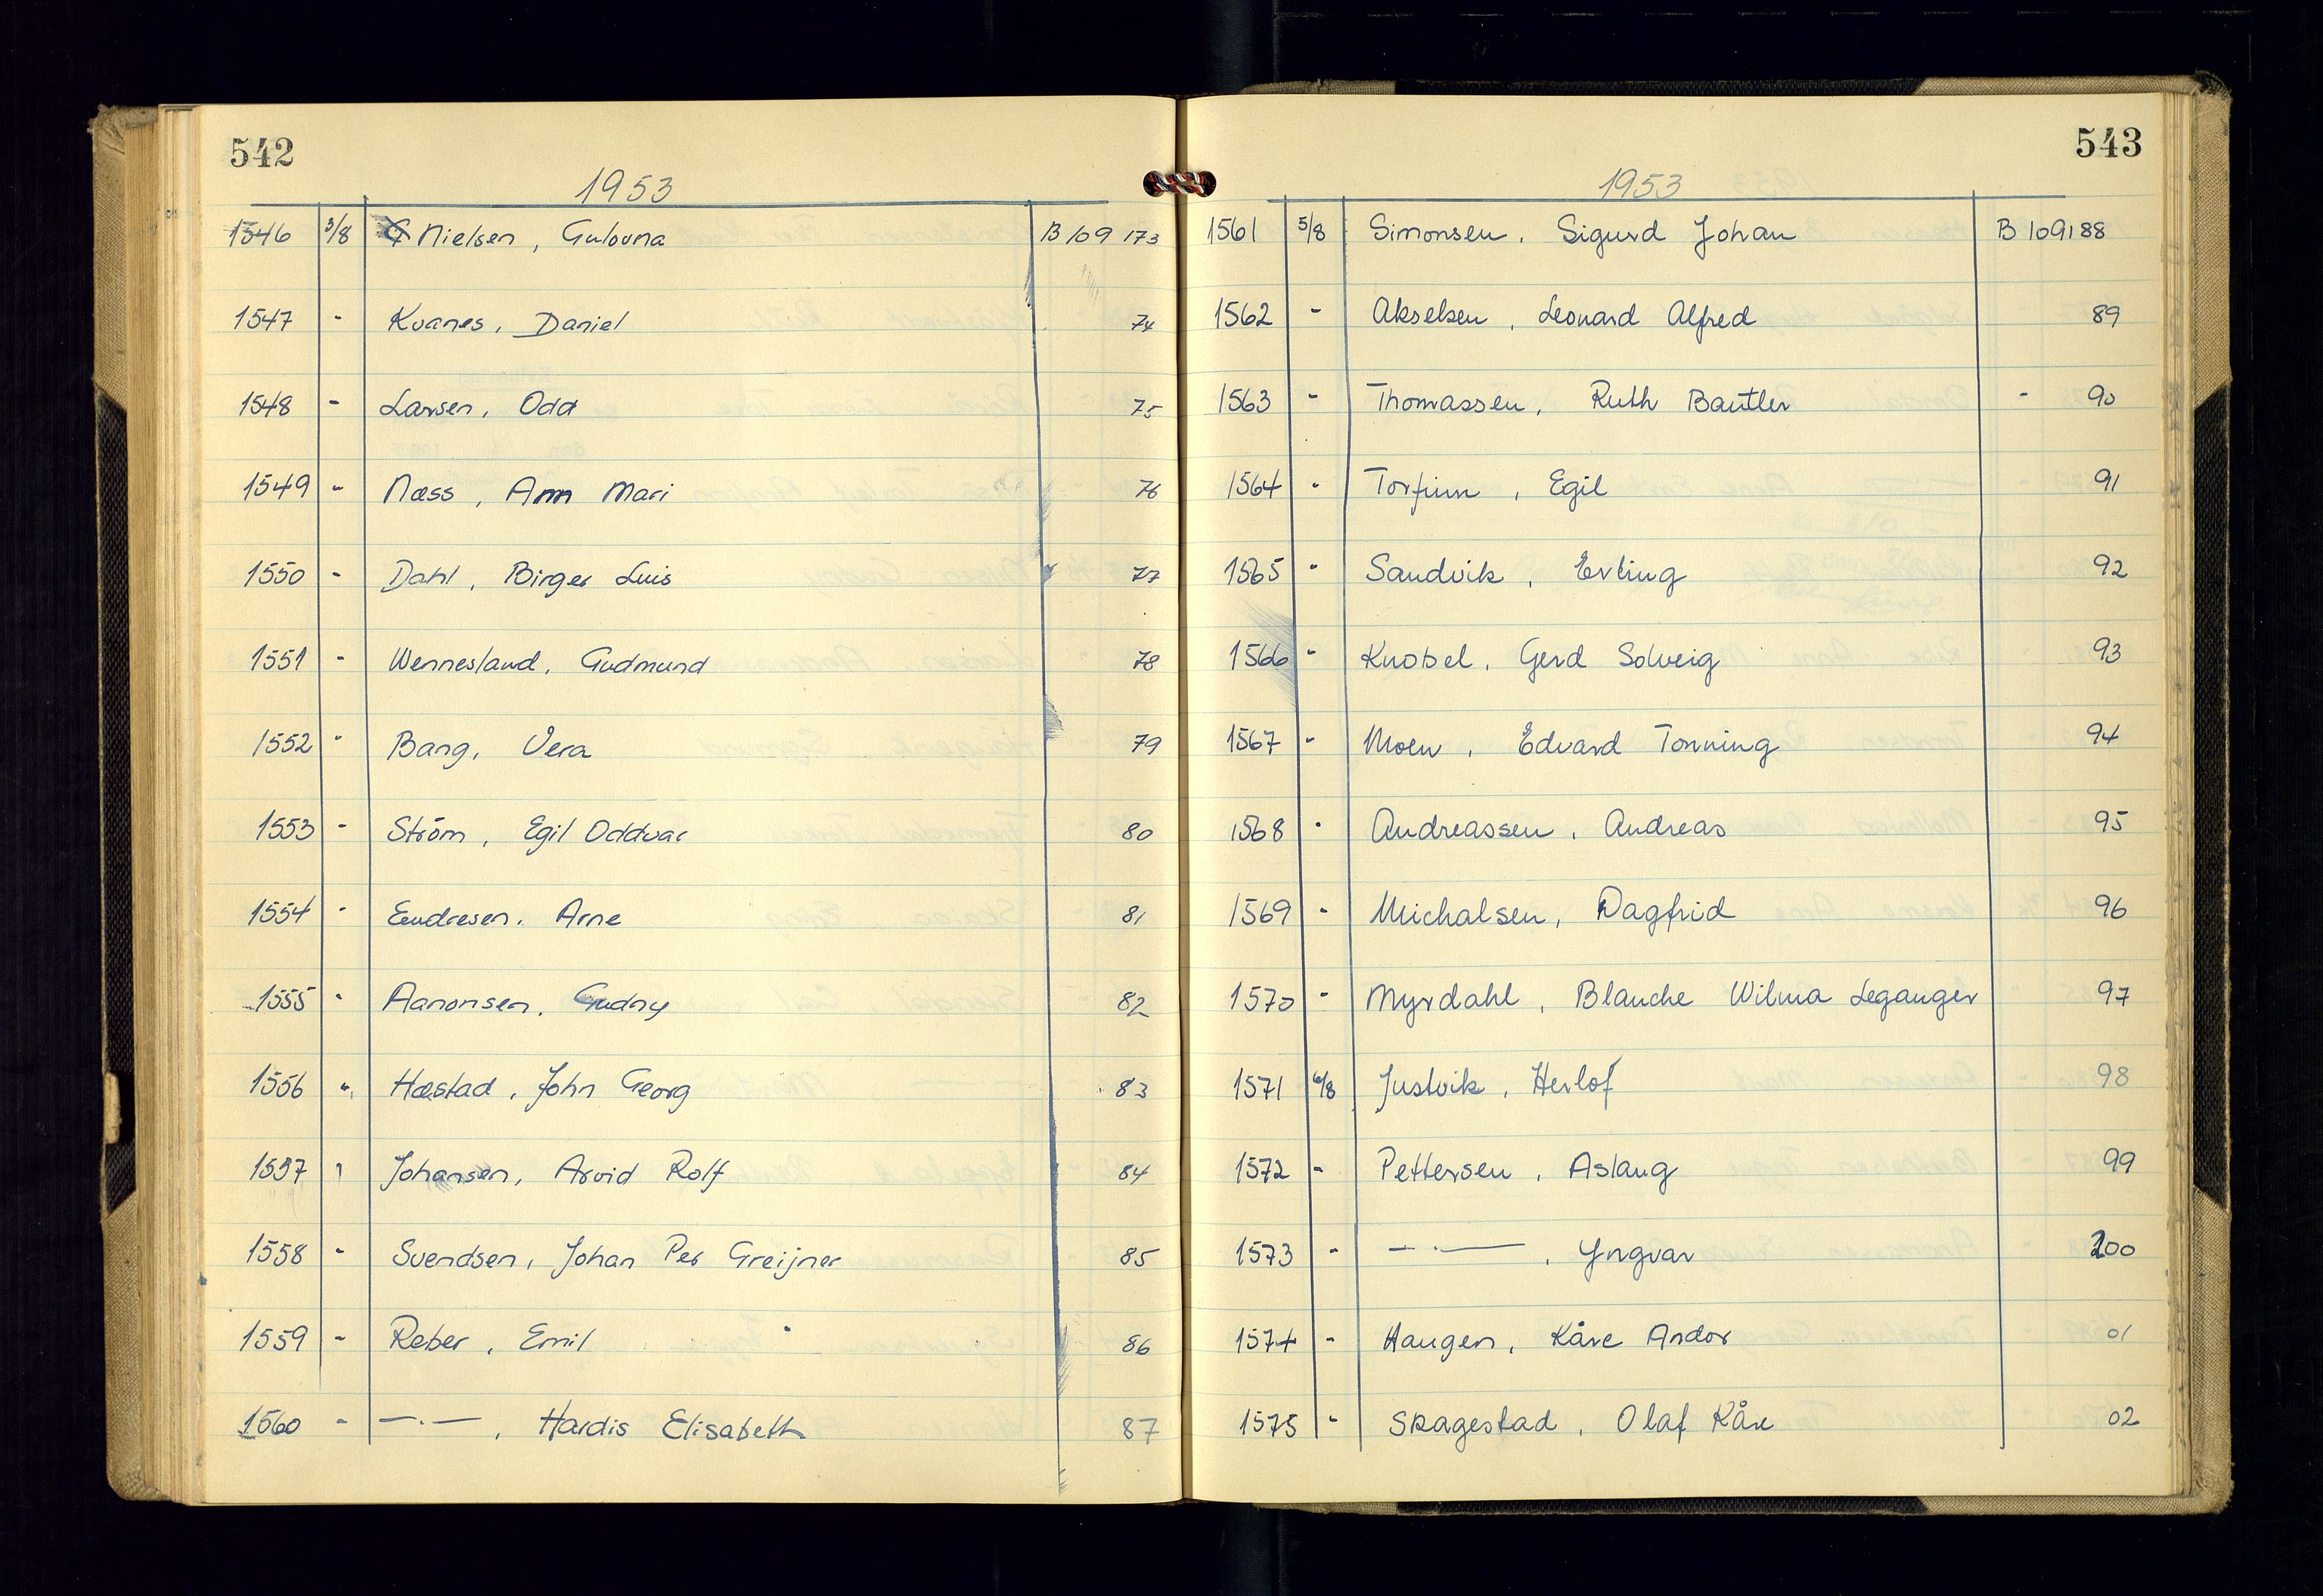 542
1953
1546 3/8 Nielsen, Gulovna B 109 173
1547 - Kvanes, Daniel 74
1548 - Larsen, Odd 75
1549 - Næss, Ann Mari 76
1550 - Dahl, Birger Luis 77
1551 - Wennesland, Gudmund 78
1552 - Bang, Vera 79
1553 - Ström, Egil Oddvar 80
1554 - Eendresen, Arne 81
1555 - Aanonsen, Gudny 82
1556 " Hæstad, John Georg 83
1557 " Johansen, Arvid Rolf 84
1558 - Svendsen, Johan Per Greijner 85
1559 - Reber, Emil 86
1560 - —.—, Hardis Elisabeth 87
543
1953
1561 5/8 Simonsen, Sigurd Johan B 109188
1562 - Akselsen, Leonard Alfred 89
1563 - Thomassen, Ruth Bautler - 90
1564 - Torfinn, Egil 91
1565 - Sandvik, Erling 92
1566 - Knobel, Gerd Solveig 93
1567 - Moen, Edvard Tonning 94
1568 - Andreassen, Andreas 95
1569 - Michalsen, Dagfrid 96
1570 - Myrdahl, Blanche Wilma Leganger 97
1571 6/8 Justvik, Herlof 98
1572 - Pettersen, Aslaug 99
1573 - —.—, Yngvar 200
1574 - Haugen, Kåre Andor 01
1575 - Skagestad, Olaf Kåre 02